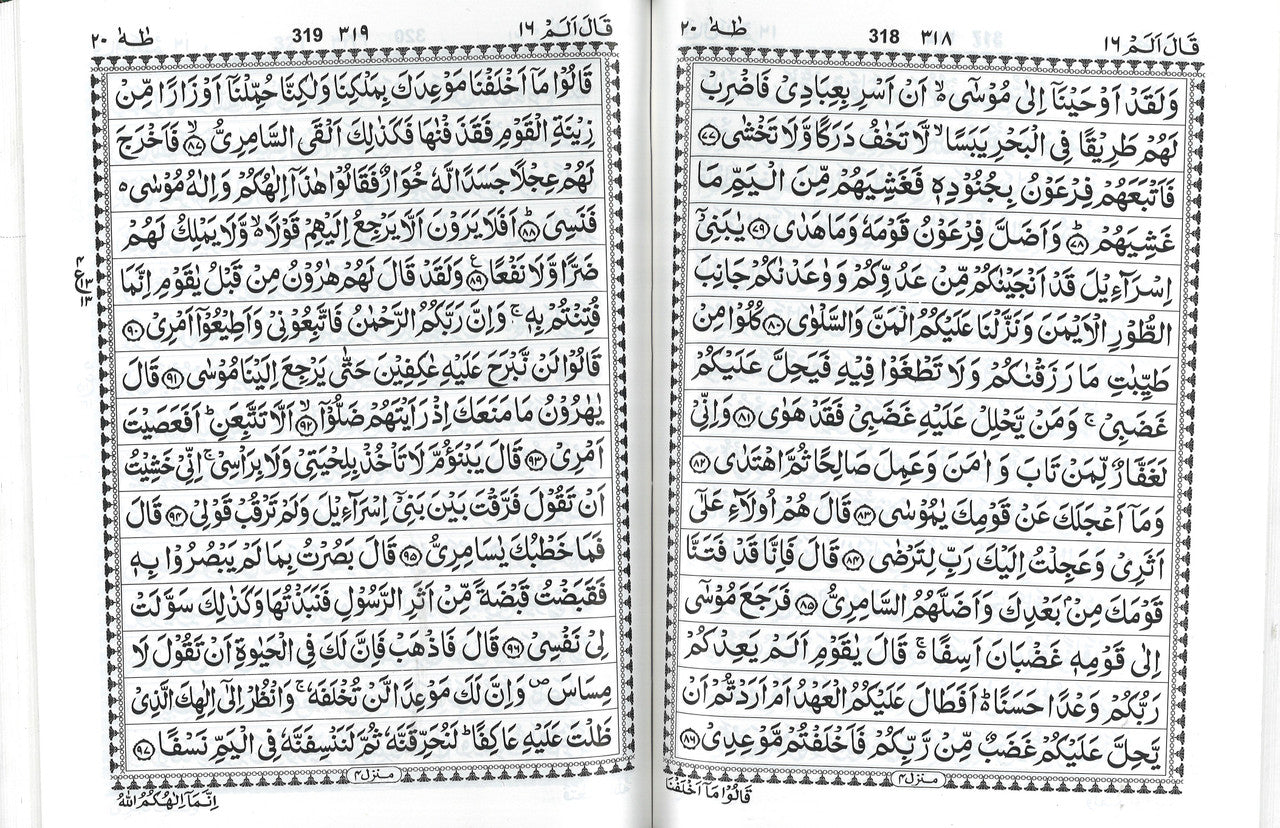 قَالَ اَلَمْ ١٦
٣١٨ 318
طٰهٰ ٢٠
وَلَقَدْ اَوْحَيْنَاۤ اِلٰى مُوْسٰٓى ۙ۬ اَنْ اَسْرِ بِعِبَادِیْ فَاضْرِبْ
لَهُمْ طَرِيْقًا فِی الْبَحْرِ يَبَسًا ۙ لَّا تَخٰفُ دَرَكًا وَّلَا تَخْشٰى ﴿٧٧﴾
فَاَتْبَعَهُمْ فِرْعَوْنُ بِجُنُوْدِهٖ فَغَشِيَهُمْ مِّنَ الْيَمِّ مَا
غَشِيَهُمْ ﴿٧٨﴾ؕ وَاَضَلَّ فِرْعَوْنُ قَوْمَهٗ وَمَا هَدٰى ﴿٧٩﴾ يٰبَنِیْۤ
اِسْرَآءِيْلَ قَدْ اَنْجَيْنٰكُمْ مِّنْ عَدُوِّكُمْ وَوٰعَدْنٰكُمْ جَانِبَ
الطُّوْرِ الْاَيْمَنَ وَنَزَّلْنَا عَلَيْكُمُ الْمَنَّ وَالسَّلْوٰى ﴿٨٠﴾ كُلُوْا مِنْ
طَيِّبٰتِ مَا رَزَقْنٰكُمْ وَلَا تَطْغَوْا فِيْهِ فَيَحِلَّ عَلَيْكُمْ
غَضَبِیْ ۚ وَمَنْ يَّحْلِلْ عَلَيْهِ غَضَبِیْ فَقَدْ هَوٰى ﴿٨١﴾ وَاِنِّیْ
لَغَفَّارٌ لِّمَنْ تَابَ وَاٰمَنَ وَعَمِلَ صَالِحًا ثُمَّ اهْتَدٰى ﴿٨٢﴾
وَمَاۤ اَعْجَلَكَ عَنْ قَوْمِكَ يٰمُوْسٰى ﴿٨٣﴾ قَالَ هُمْ اُولَآءِ عَلٰٓى
اَثَرِیْ وَعَجِلْتُ اِلَيْكَ رَبِّ لِتَرْضٰى ﴿٨٤﴾ قَالَ فَاِنَّا قَدْ فَتَنَّا
قَوْمَكَ مِنْۢ بَعْدِكَ وَاَضَلَّهُمُ السَّامِرِیُّ ﴿٨٥﴾ فَرَجَعَ مُوْسٰٓى
اِلٰى قَوْمِهٖ غَضْبَانَ اَسِفًا ۚ۬ قَالَ يٰقَوْمِ اَلَمْ يَعِدْكُمْ
رَبُّكُمْ وَعْدًا حَسَنًا ؕ۬ اَفَطَالَ عَلَيْكُمُ الْعَهْدُ اَمْ اَرَدْتُّمْ اَنْ
يَّحِلَّ عَلَيْكُمْ غَضَبٌ مِّنْ رَّبِّكُمْ فَاَخْلَفْتُمْ مَّوْعِدِیْ ﴿٨٦﴾
منزل ٤
قَالُوْا مَاۤ اَخْلَفْنَا
قَالَ اَلَمْ ١٦
٣١٩ 319
طٰهٰ ٢٠
قَالُوْا مَاۤ اَخْلَفْنَا مَوْعِدَكَ بِمَلْكِنَا وَلٰكِنَّا حُمِّلْنَاۤ اَوْزَارًا مِّنْ
زِيْنَةِ الْقَوْمِ فَقَذَفْنٰهَا فَكَذٰلِكَ اَلْقَى السَّامِرِیُّ ﴿٨٧﴾ۙ فَاَخْرَجَ
لَهُمْ عِجْلًا جَسَدًا لَّهٗ خُوَارٌ فَقَالُوْا هٰذَاۤ اِلٰهُكُمْ وَاِلٰهُ مُوْسٰى ۬
فَنَسِیَ ﴿٨٨﴾ؕ اَفَلَا يَرَوْنَ اَلَّا يَرْجِعُ اِلَيْهِمْ قَوْلًا ۙ۬ وَّلَا يَمْلِكُ لَهُمْ
ضَرًّا وَّلَا نَفْعًا ﴿٨٩﴾ع وَلَقَدْ قَالَ لَهُمْ هٰرُوْنُ مِنْ قَبْلُ يٰقَوْمِ اِنَّمَا
ع ٤ ١٣ ١٣
فُتِنْتُمْ بِهٖ ۚ وَاِنَّ رَبَّكُمُ الرَّحْمٰنُ فَاتَّبِعُوْنِیْ وَاَطِيْعُوْۤا اَمْرِیْ ﴿٩٠﴾
قَالُوْا لَنْ نَّبْرَحَ عَلَيْهِ عٰكِفِيْنَ حَتّٰى يَرْجِعَ اِلَيْنَا مُوْسٰى ﴿٩١﴾ قَالَ
يٰهٰرُوْنُ مَا مَنَعَكَ اِذْ رَاَيْتَهُمْ ضَلُّوْۤا ﴿٩٢﴾ۙ اَلَّا تَتَّبِعَنِ ؕ اَفَعَصَيْتَ
اَمْرِیْ ﴿٩٣﴾ قَالَ يَبْنَؤُمَّ لَا تَاْخُذْ بِلِحْيَتِیْ وَلَا بِرَاْسِیْ ۚ اِنِّیْ خَشِيْتُ
اَنْ تَقُوْلَ فَرَّقْتَ بَيْنَ بَنِیْۤ اِسْرَآءِيْلَ وَلَمْ تَرْقُبْ قَوْلِیْ ﴿٩٤﴾ قَالَ
فَمَا خَطْبُكَ يٰسَامِرِیُّ ﴿٩٥﴾ قَالَ بَصُرْتُ بِمَا لَمْ يَبْصُرُوْا بِهٖ
فَقَبَضْتُ قَبْضَةً مِّنْ اَثَرِ الرَّسُوْلِ فَنَبَذْتُهَا وَكَذٰلِكَ سَوَّلَتْ
لِیْ نَفْسِیْ ﴿٩٦﴾ قَالَ فَاذْهَبْ فَاِنَّ لَكَ فِی الْحَيٰوةِ اَنْ تَقُوْلَ لَا
مِسَاسَ ۪ وَاِنَّ لَكَ مَوْعِدًا لَّنْ تُخْلَفَهٗ ۚ وَانْظُرْ اِلٰۤى اِلٰهِكَ الَّذِیْ
ظَلْتَ عَلَيْهِ عَاكِفًا ؕ لَنُحَرِّقَنَّهٗ ثُمَّ لَنَنْسِفَنَّهٗ فِی الْيَمِّ نَسْفًا ﴿٩٧﴾
منزل ٤
اِنَّمَاۤ اِلٰهُكُمُ اللّٰهُ